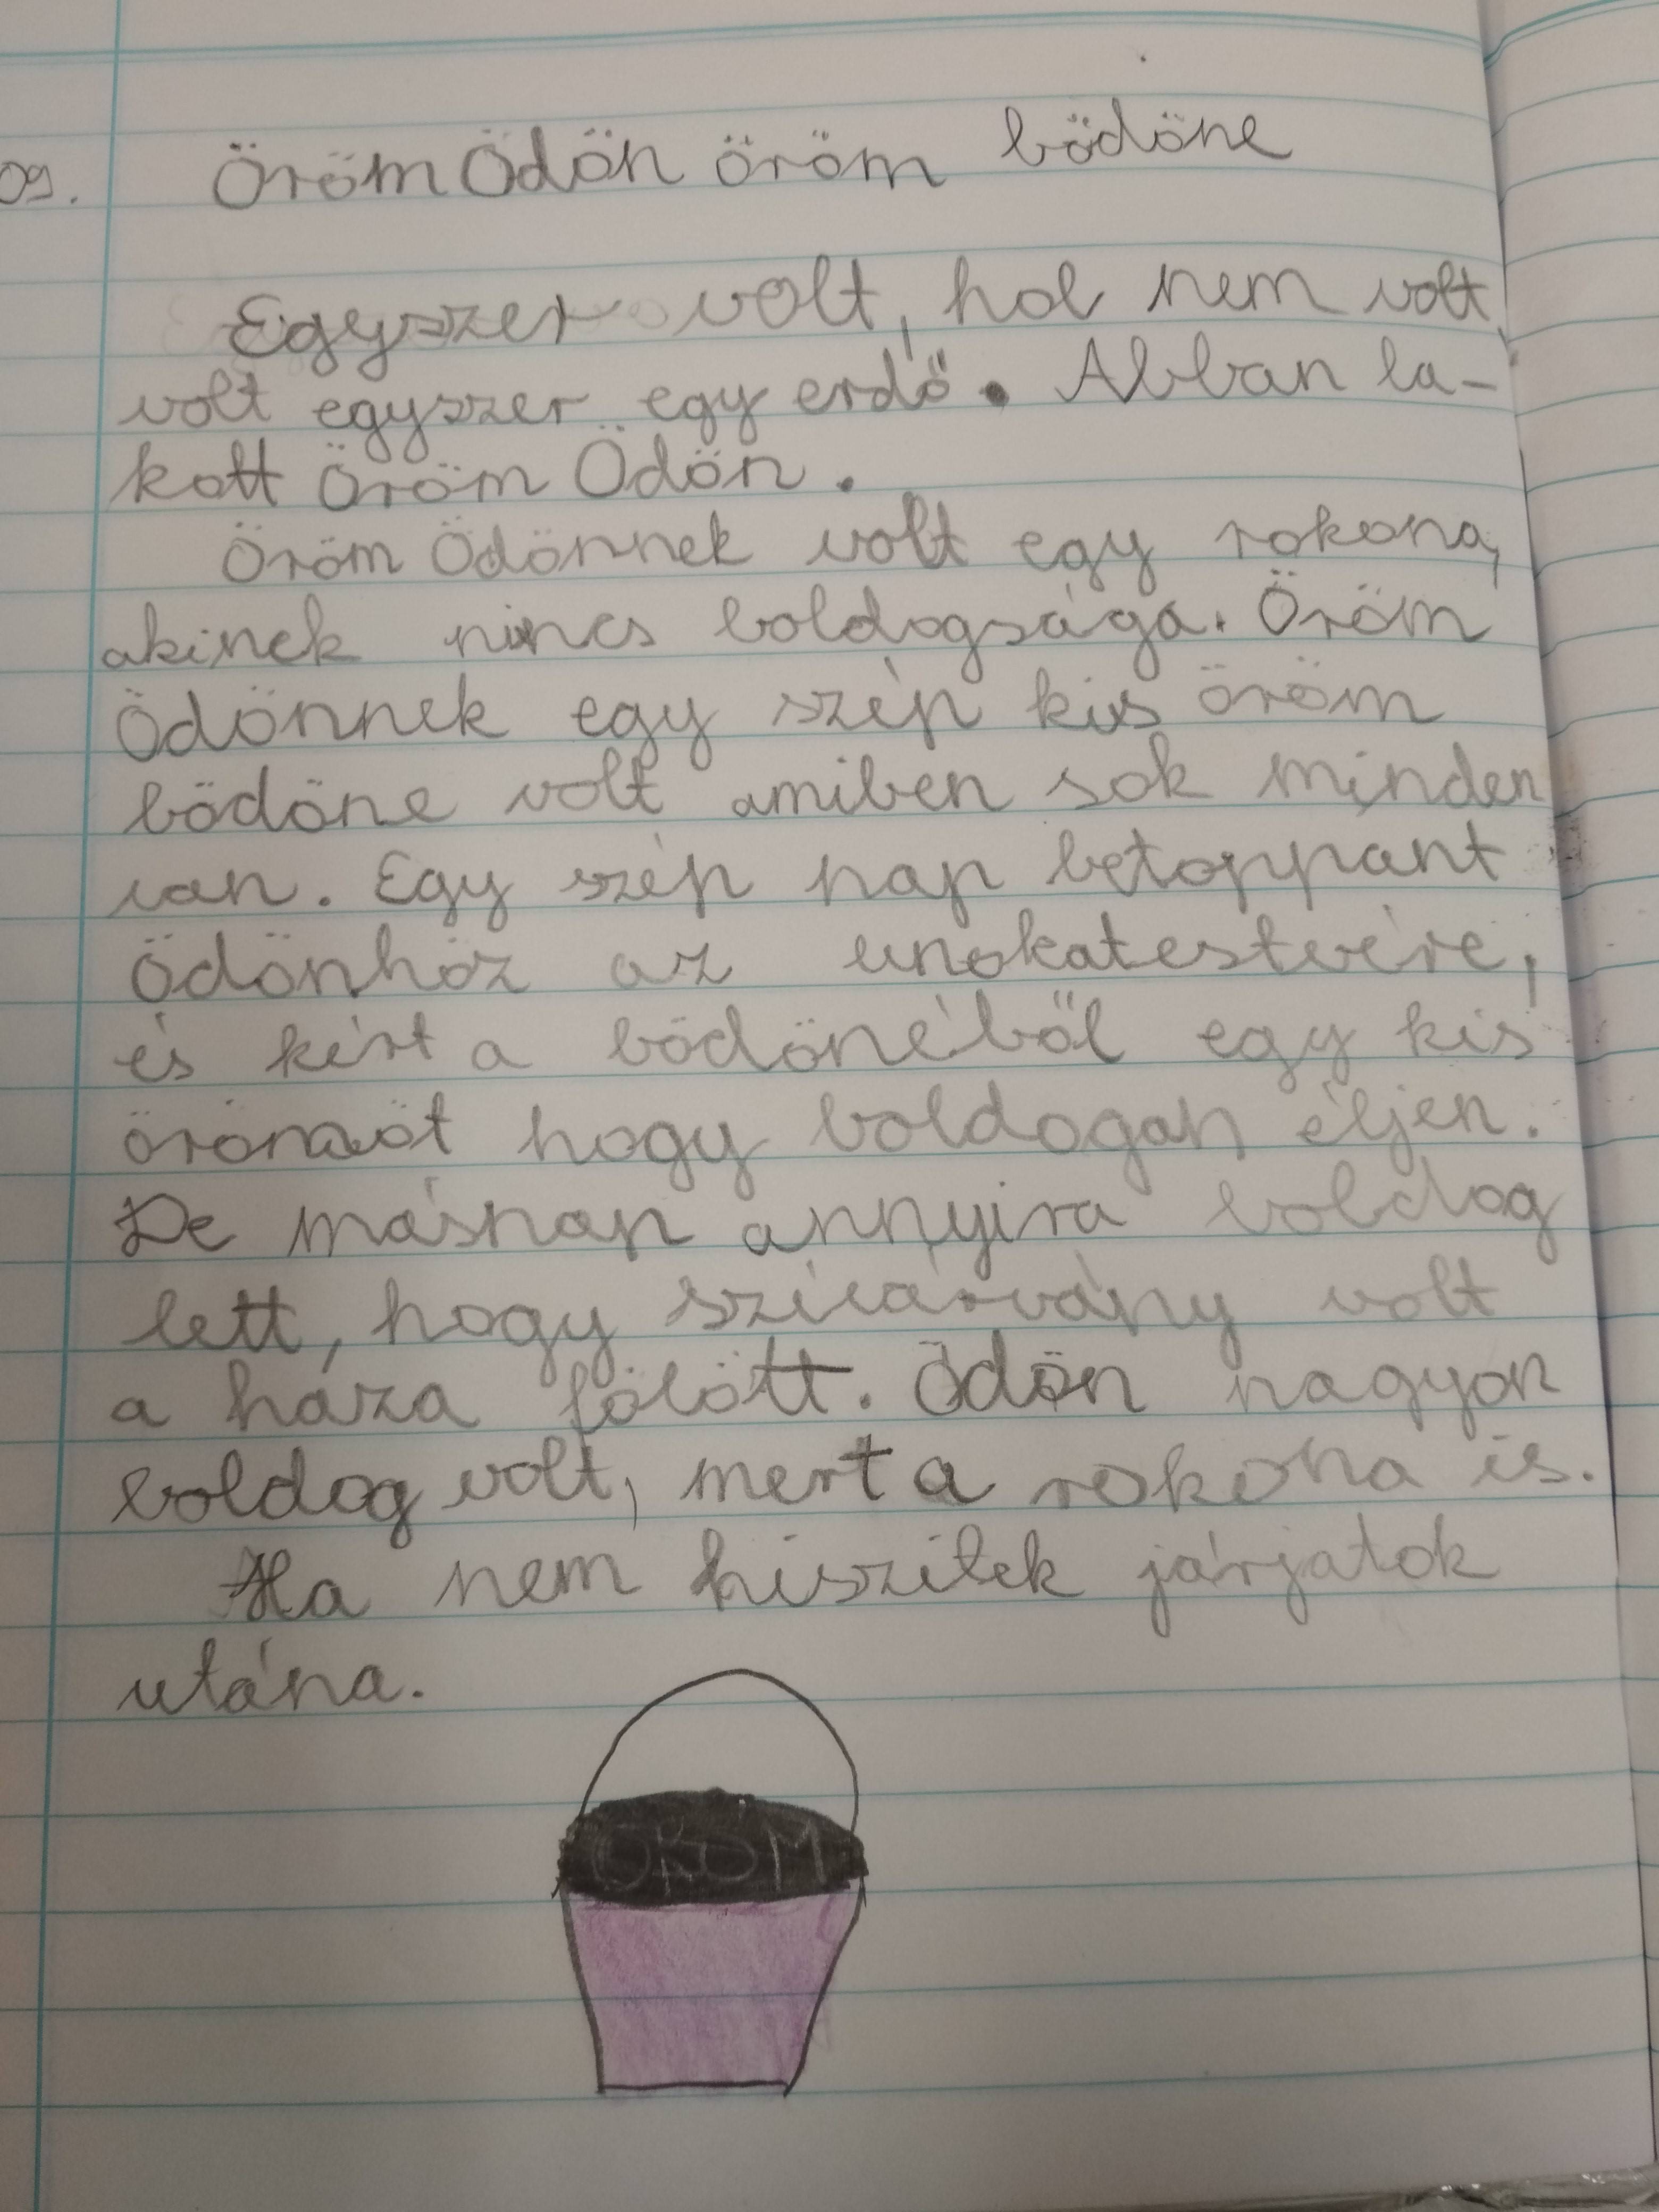 09. Öröm Ödön öröm bödöne
Egyszer volt, hol nem volt,
volt egyszer egy erdő. Abban la-
kott Öröm Ödön.
Öröm Ödönnek volt egy rokona,
akinek nincs boldogsága. Öröm
Ödönnek egy szép kis öröm
bödöne volt amiben sok minden
van. Egy szép nap betoppant
Ödönhöz az unokatestvére,
és kért a bödönéből egy kis
örömöt hogy boldogan éljen.
De másnap annyira boldog
lett, hogy szivárvány volt
a háza fölött. Ödön nagyon
boldog volt, mert a rokona is.
Ha nem hiszitek járjatok
utána.
ÖRÖM